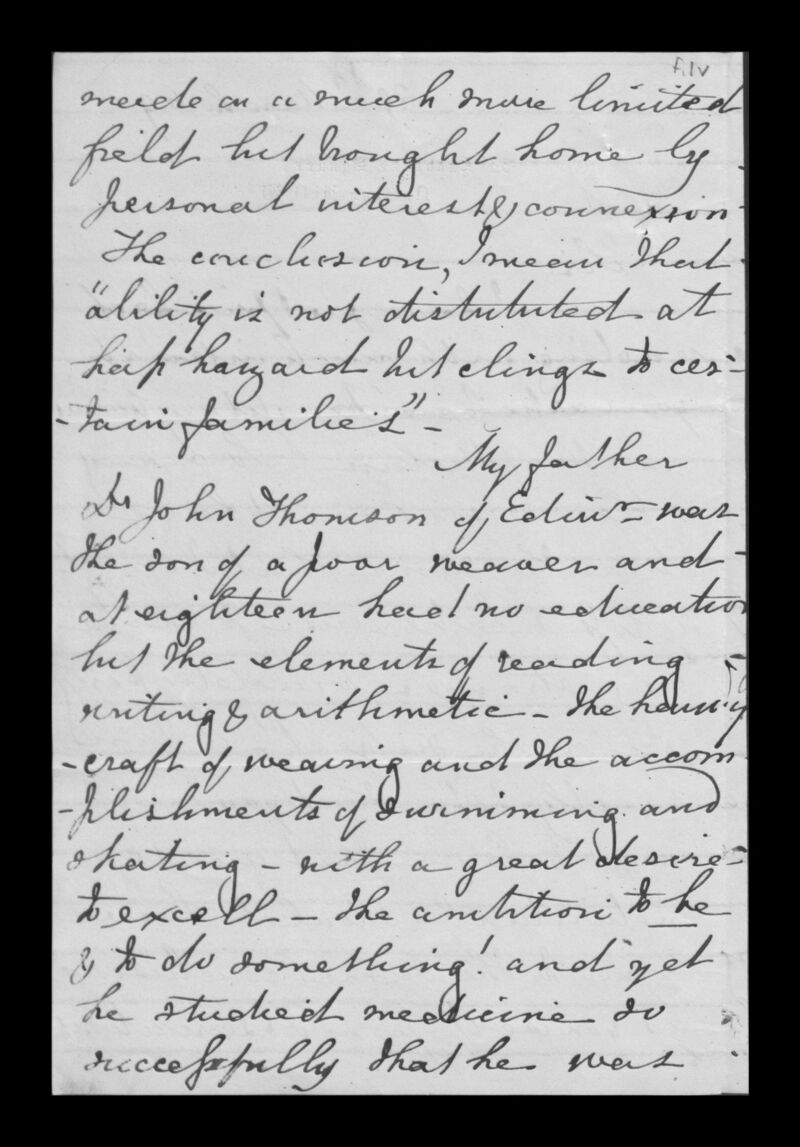 f.1v
made on a much more limited
field but brought home by
personal interest & connexion
The conclusion, I mean that
"ability is not distributed at
hap hazard but clings to cer-
-tain families" -
My father
Dr John Thomson of Edinr - was
the son of a poor weaver and
at eighteen had no education
but the elements of reading
writing & arithmetic - the handy
-craft of weaving and the accom
-plishments of swimming and
skating - with a great desire
to excell - the ambition to be
& to do something! and yet
he studied medicine so
successfully that he was